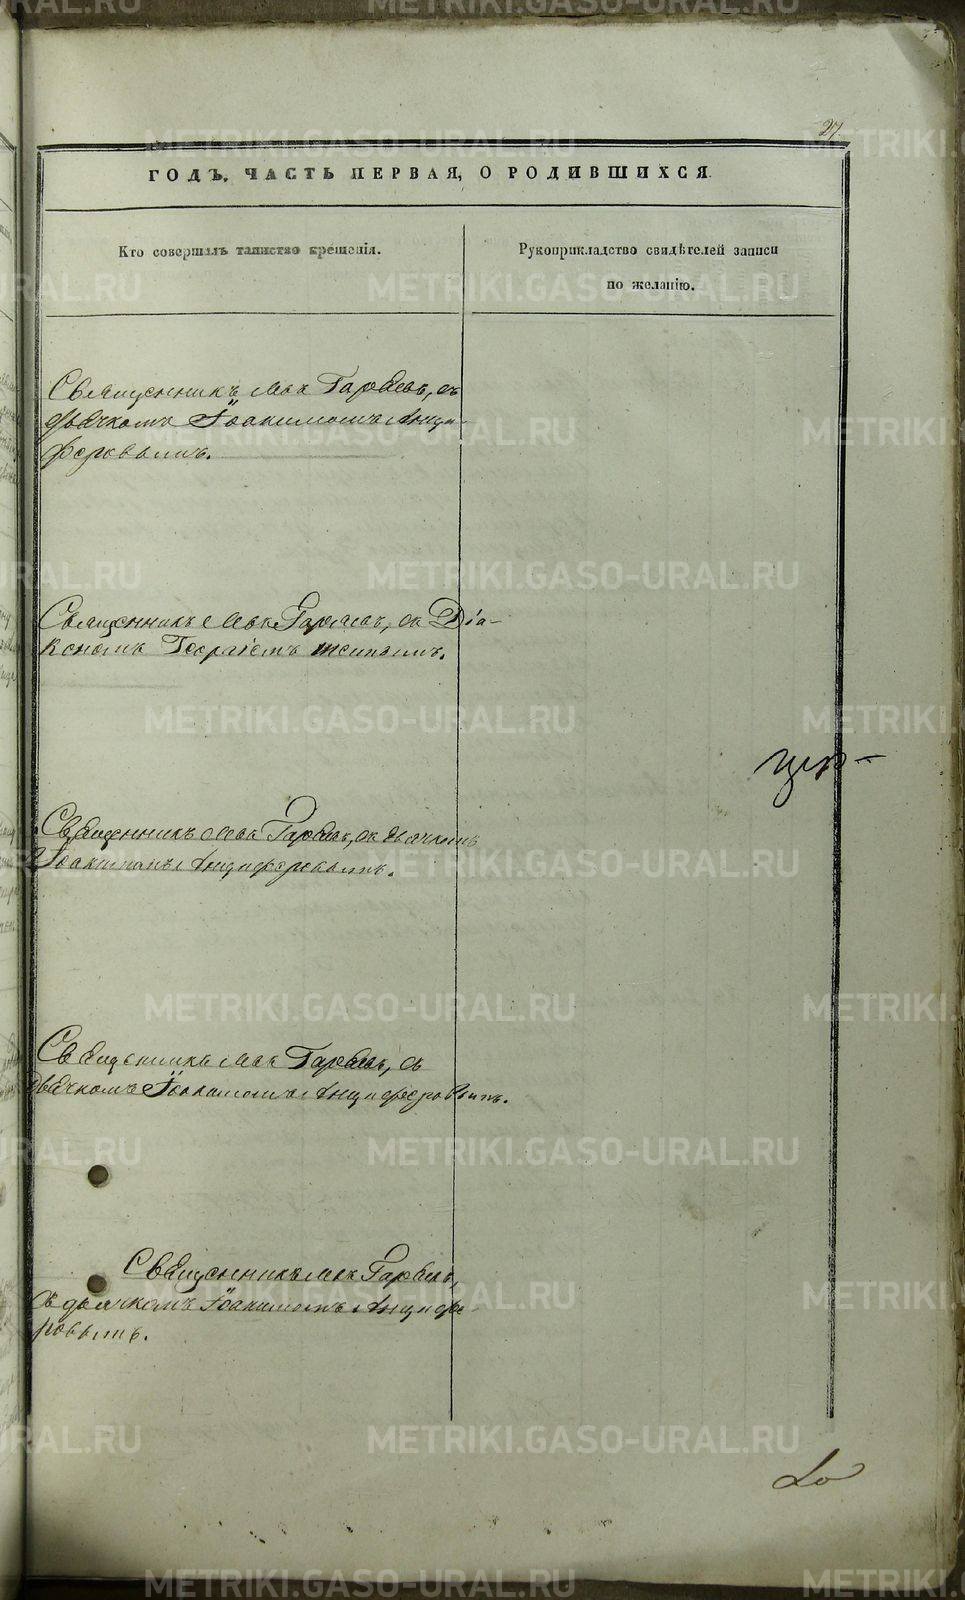 27.
ГОДЪ. ЧАСТЬ ПЕРВАЯ, О РОДИВШИХСЯ.
Кто совершалъ таинство крещенія.
Рукоприкладство свидѣтелей записи
по желанію.
Священникъ Левъ Гаряевъ, съ
дьячкомъ Іоакимомъ Анци-
феровымъ.
Священникъ Левъ Гаряевъ, съ Діа-
кономъ Георгіемъ
Священникъ Левъ Гаряевъ, съ дьячкомъ
Іоакимомъ Анциферовымъ.
цер-
Священникъ Левъ Гаряевъ, съ
дьячкомъ Іоакимомъ Анциферовымъ.
Священникъ Левъ Гаряевъ,
съ дьячкомъ Іоакимомъ Анцифе-
ровымъ.
METRIKI.GASO-URAL.RU